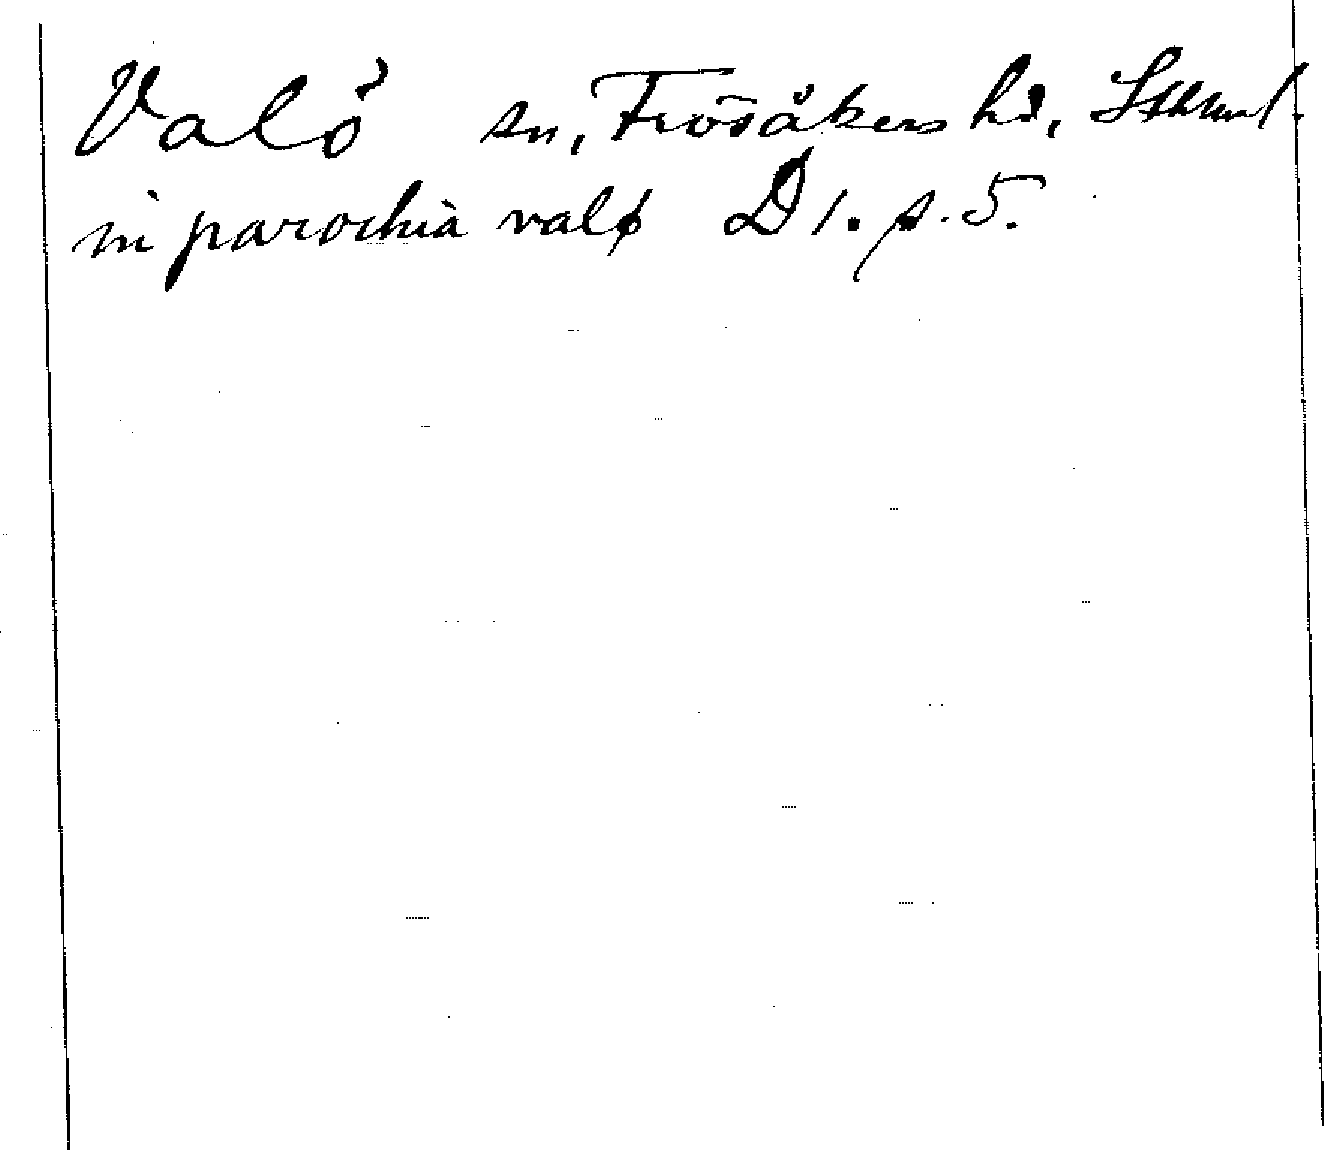 Valö sn, Frösåkers hd, Sthml.
in parochia valø D 1. s. 5.